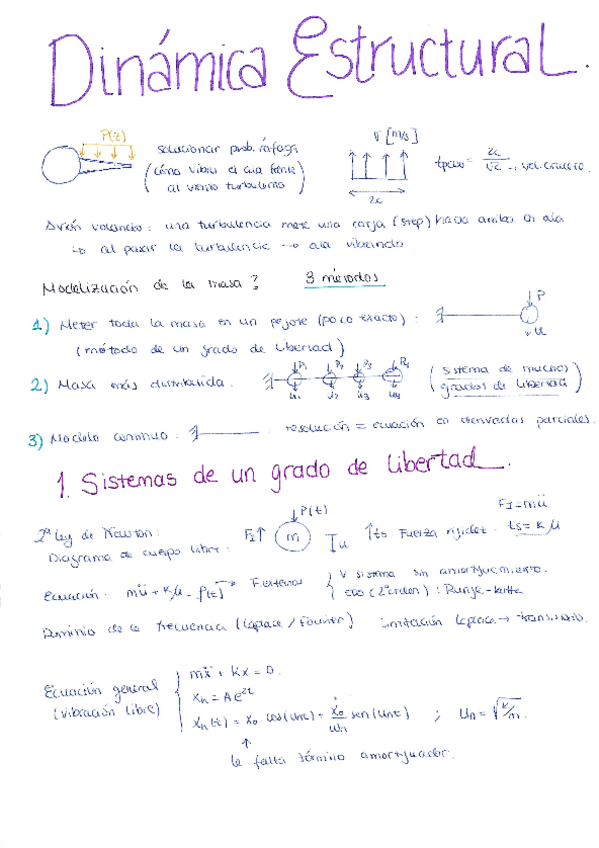 Dinámica Estructural.
P(z)
solucionar prob. ráfaga
(cómo vibra el ala frente
al viento turbulento)
V [m/s]
2c
vel. crucero.
Avión volando: una turbulencia mete una carga (step) hacia arriba en ala
→ al pasar la turbulencia → ala vibrando
Modelización de la masa? 3 métodos
1) Meter toda la masa en un pegote (poco exacto): P
u
(método de un grado de libertad)
2) Masa más distribuida. P1 P2 P3 P4 (sistema de muchos
u1 u2 u3 u4 grados de libertad)
3) Modelo continuo: resolución = ecuación en derivadas parciales.
1. Sistemas de un grado de libertad.
2ª Ley de Newton:
Diagrama de cuerpo libre: FI↑ m P(t) u ↑fs Fuerza rigidez. FI=mü
fs = K u
Ecuación: mü + Ku = p(t) → F. externa { sistema sin amortiguamiento.
(2ºorden): Runge-Kutta
Dominio de la frecuencia (Laplace / Fourier) Limitación Laplace → transitorio.
Ecuación general
(vibración libre)
mẍ + kx = 0.
xh = Ae^zt
xh(t) = x0 cos(ωnt) + ẋ0/ωn sen(ωnt) ; ωn = √k/m.
↑
le falta término amortiguador.